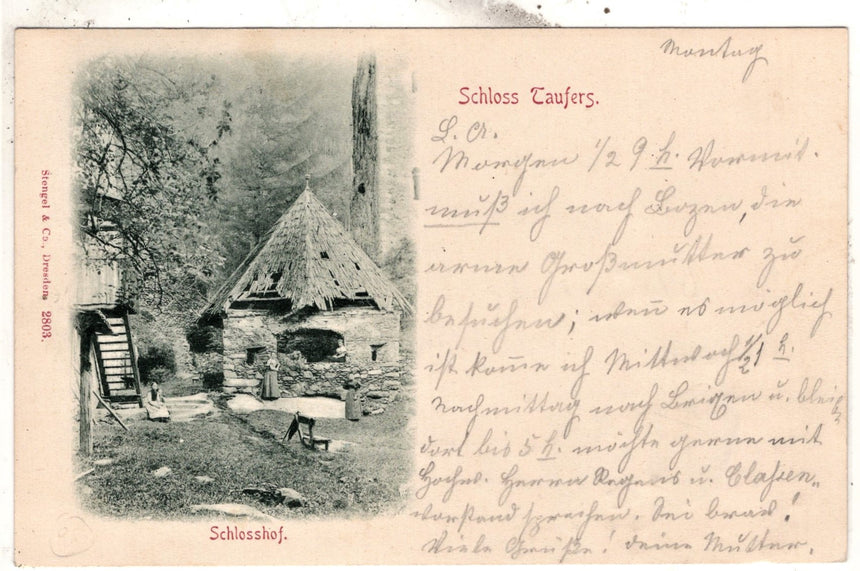 Montag
Schloss Taufers.
L. A.
Morgen 1/2 9 h. Vormit.
muß ich nach Bozen, die
arme Großmutter zu
besuchen; wen̅ es möglich
ist kom̅e ich Mittwoch 1/2 1 h.
Nachmittag nach Brixen u. bleib
dort bis 5 h. möchte gerne mit
Hochw. Herrn Regens u. Classen„
vorstand sprechen. Sei brav!
Viele Grüße! deine Mutter.
Stengel & Co., Dresden 2803.
Schlosshof.